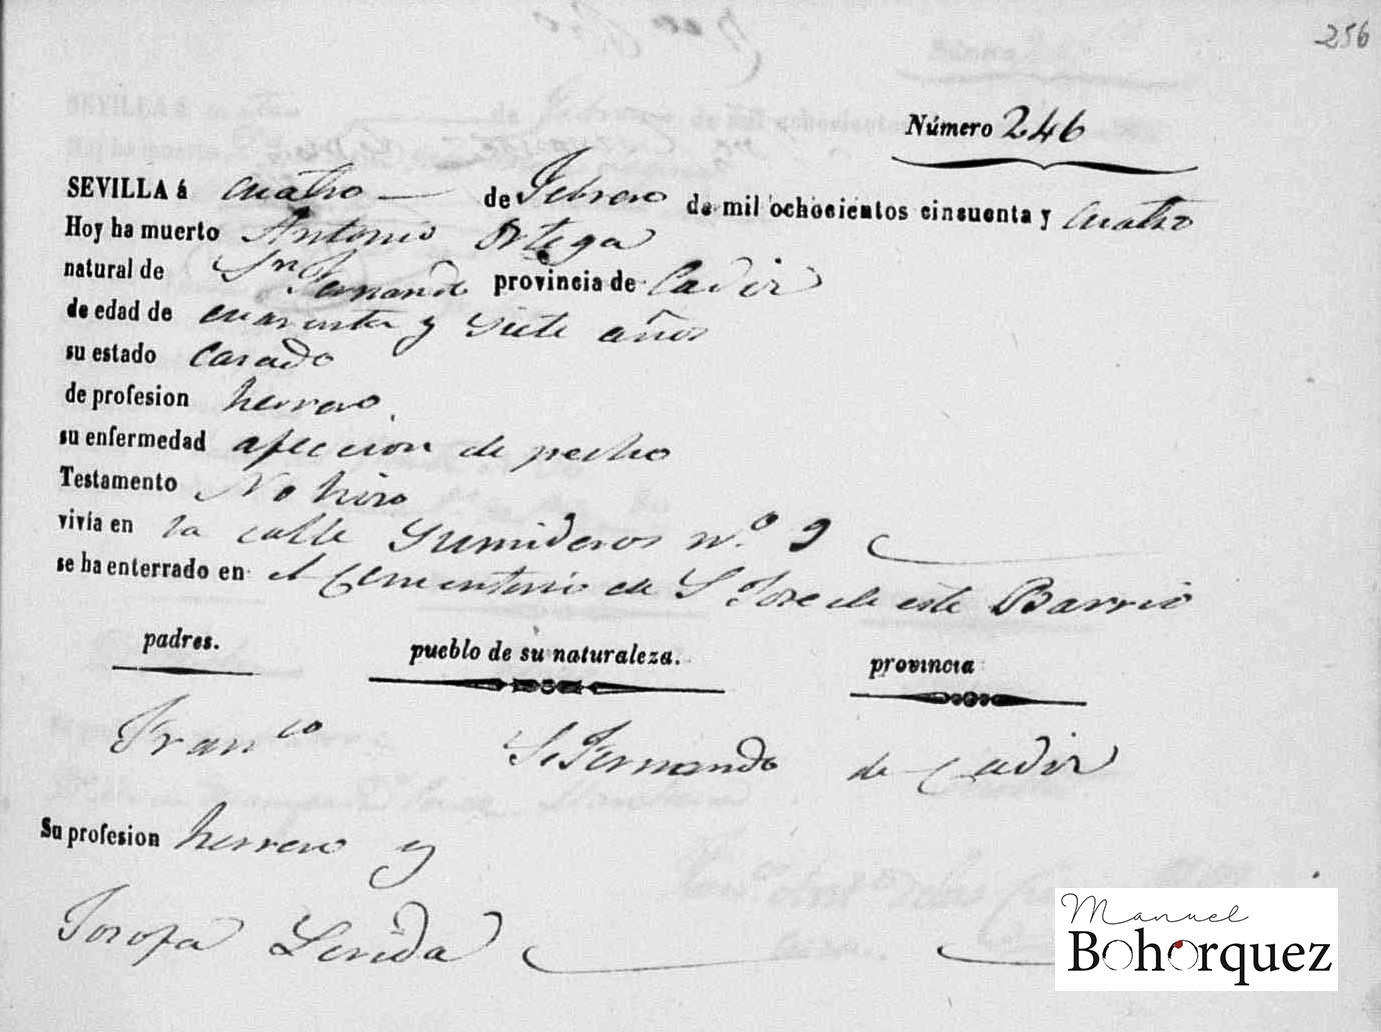 256
Número 246
SEVILLA á cuatro de Febrero de mil ochocientos cincuenta y cuatro
Hoy ha muerto Antonio Ortega
natural de Sn. Fernando provincia de Cadiz
de edad de cuarenta y siete años
su estado Casado
de profesion herrero.
su enfermedad afeccion de pecho
Testamento No hizo
vivía en la calle Sumideros nº. 9
se ha enterrado en el Cementerio de S. Jose de este Barrio
padres. pueblo de su naturaleza. provincia
Franco S. Fernando de Cadiz
Su profesion herrero y
Josefa Lerida
Manuel
Bohórquez